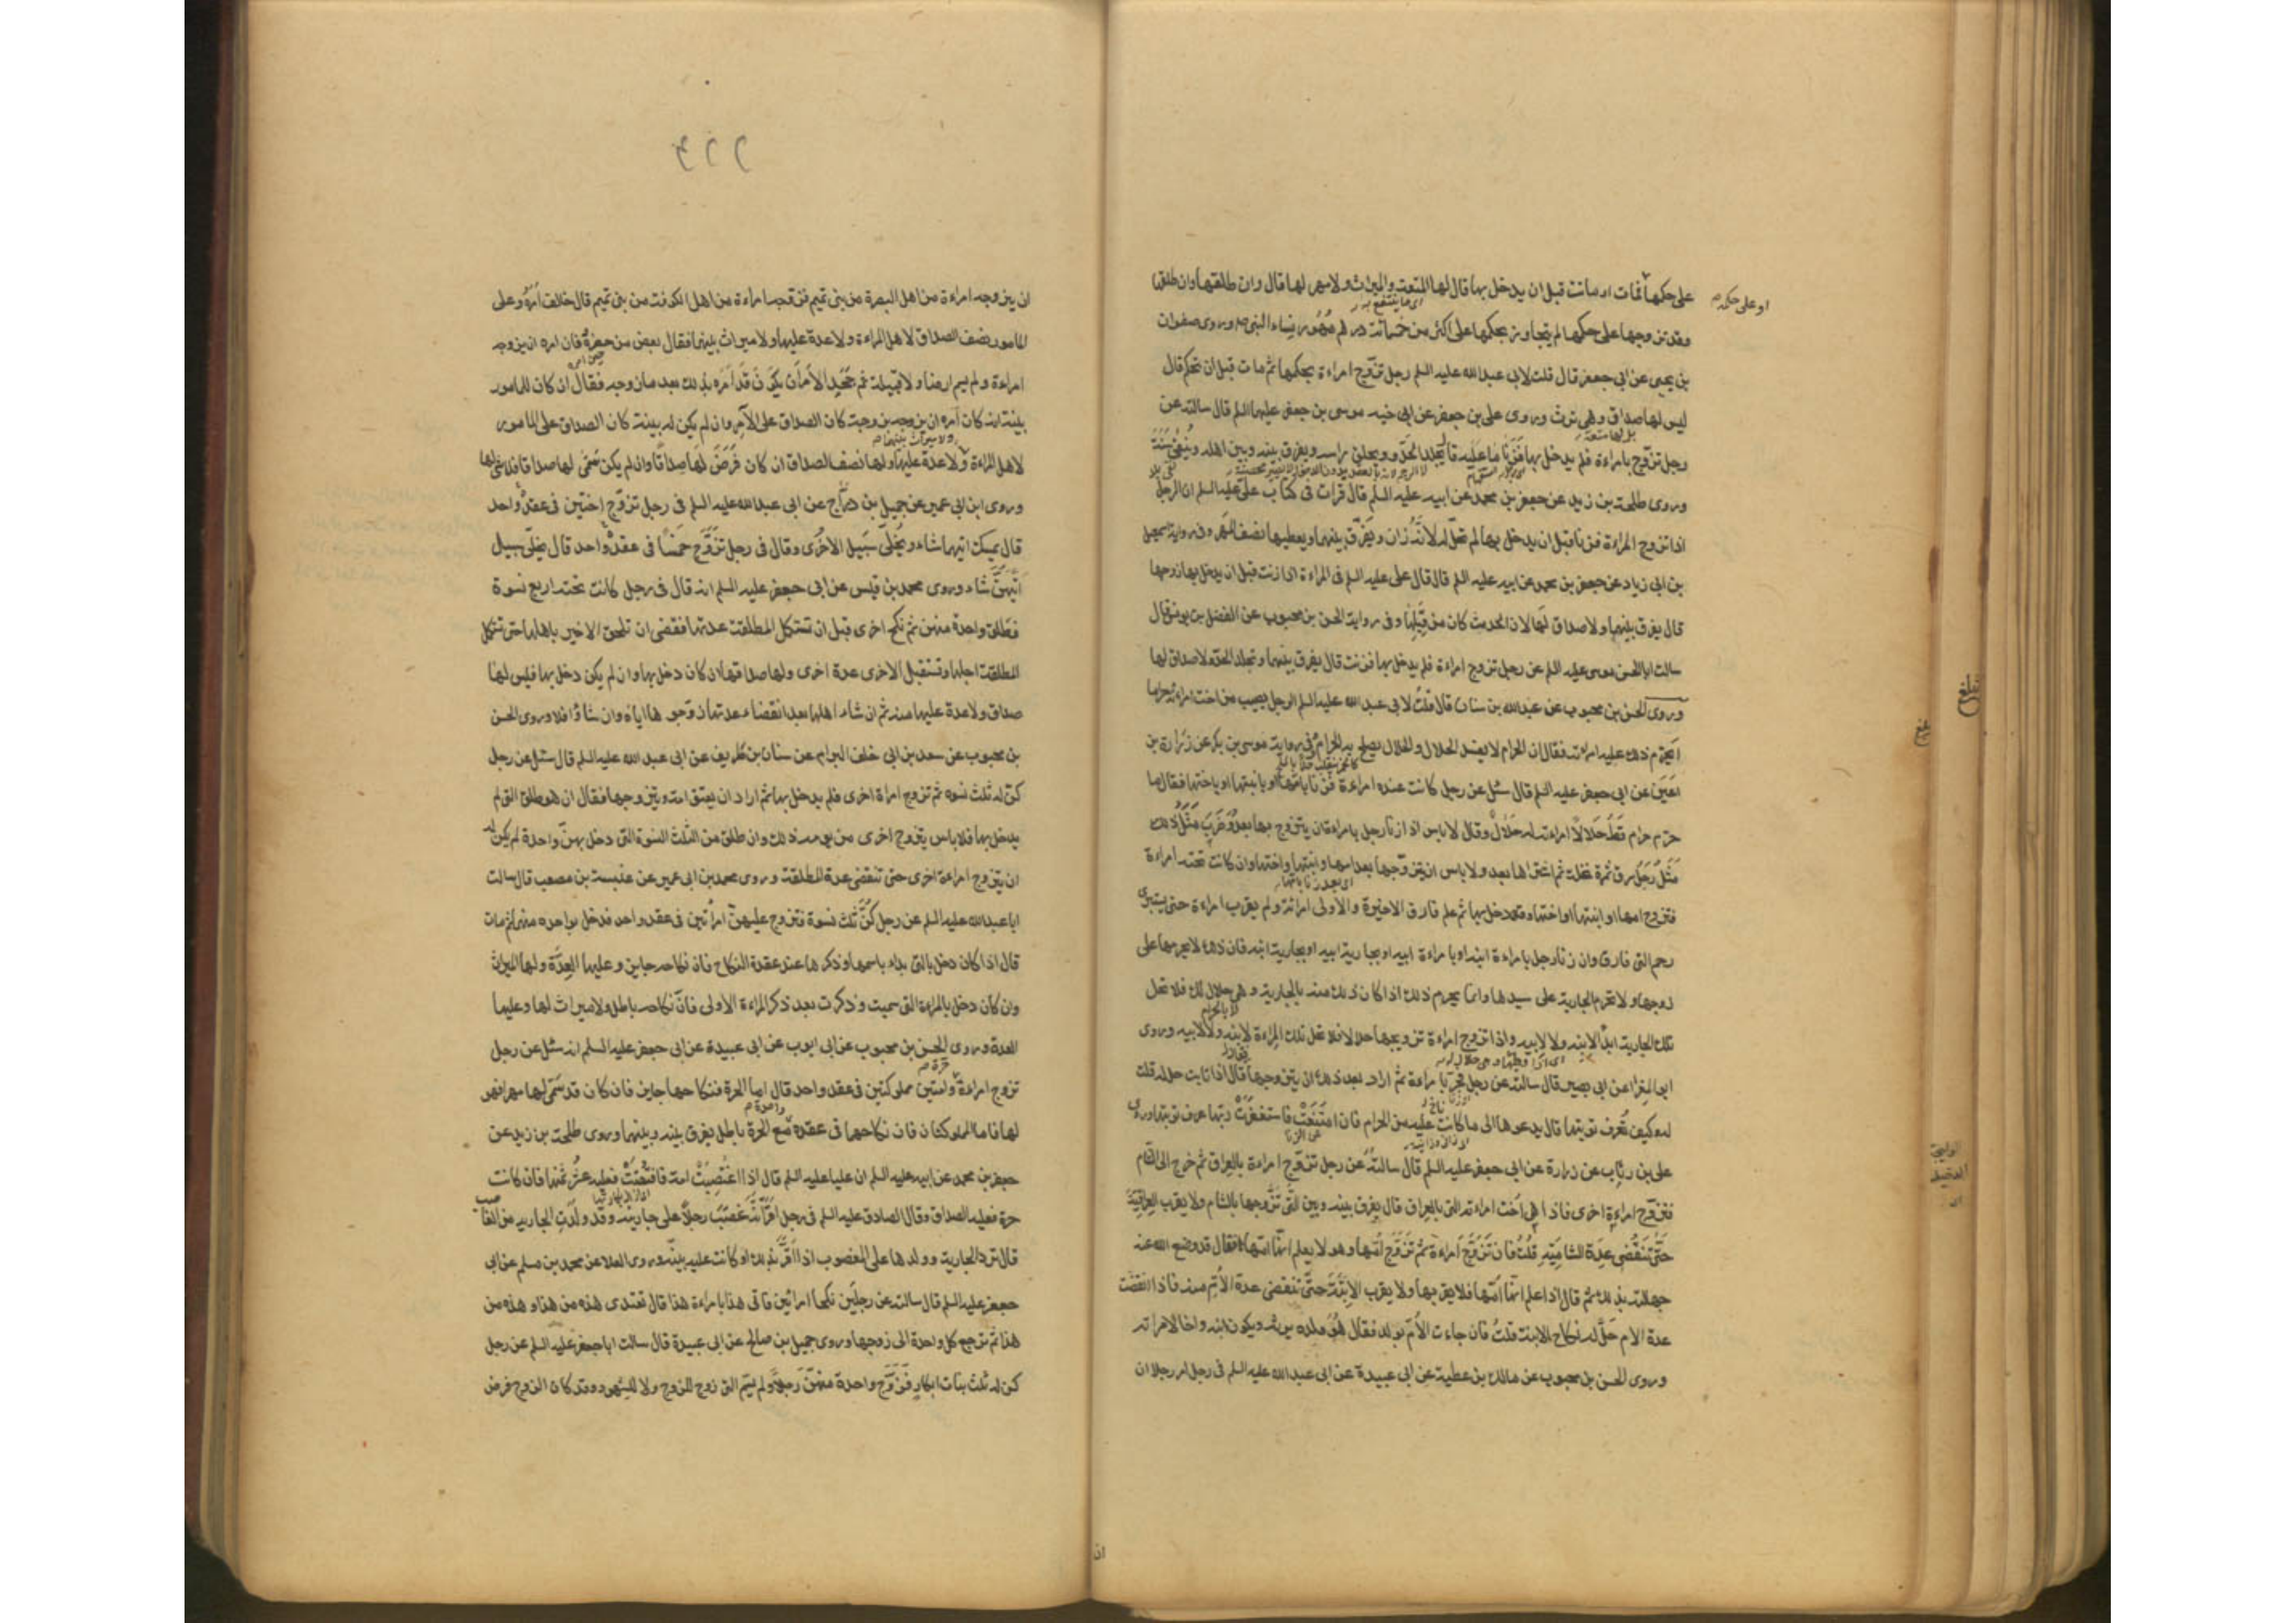 على حكمها فمات او ماتت قبل ان يدخل بها قال لها المتعة والميراث ولا مهر لها قال وان طلقها وان طلقها
او على حكمه
وقد تزوجها على حكمها لم يتجاوز بحكمها على اكثر من خمسمائة درهم مهور نساء النبي ص وروى صفوان
بن يحيى عن ابى جعفر قال قلت لابى عبد الله عليه السلم رجل تزوج امراءة بحكمها ثم مات قبل ان تحكم قال
ليس لها صداق وهى ترث وروى على بن جعفر عن اخيه موسى بن جعفر عليهما السلم قال سالته عن
رجل تزوج بامراءة فلم يدخل بها فزنا ما عليه قال يجلد الحد ويحلق راسه ويفرق بينه وبين اهله وينفى سنة
وروى طلحة بن زيد عن جعفر بن محمد عن ابيه عليه السلم قال قرات فى كتاب على عليه السلم ان الرجل
اذا تزوج المراءة فزنا قبل ان يدخل بها لم تحل له لانه زان ويفرق بينهما ويعطيها نصف المهر وفى رواية اسمعيل
بن ابى زياد عن جعفر بن محمد عن ابيه عليه السلم قال قال على عليه السلم فى المراءة اذا زنت قبل ان يدخل بها زوجها
قال يفرق بينهما ولا صداق لها لان الحدث كان من قبلها وفى رواية الحسن بن محبوب عن الفضل بن يونس قال
سالت ابا الحسن موسى عليه السلم عن رجل تزوج امراءة فلم يدخل بها فزنت قال يفرق بينهما وتجلد الحد ولا صداق لها
وروى الحسن بن محبوب عن عبد الله بن سنان قال قلت لابى عبد الله عليه السلم الرجل يصيب من اخت امراته حراما
ايحرم ذلك عليه امراته فقال ان الحرام لا يفسد الحلال والحلال يصلح به الحرام وفى رواية موسى بن بكر عن زرارة بن
اعين عن ابى جعفر عليه السلم قال سئل عن رجل كانت عنده امراءة فزنا بامها او بابنتها او باختها فقال ما
حرم حرام قط حلالا امراته له حلال وقال لا باس اذا زنا رجل بامراءة ان يتزوج بها بعد وضرب مثل ذلك
مثل رجل سرق ثمرة نخلة ثم اشتراها بعد ولا باس ان يتزوجها بعد امها او ابنتها او اختها وان كانت تحته امراءة
فتزوج امها او ابنتها او اختها فدخل بها ثم علم فارق الاخيرة والاولى امراته ولم يقرب امراءة حتى يستبرى
رحم التى فارق وان زنا رجل بامراءة ابنه او بامراءة ابيه او بجارية ابيه او بجارية ابنه فان ذلك لا يحرمها على
زوجها ولا تحرم الجارية على سيدها وانما يحرم ذلك اذا كان ذلك منه بالجارية وهى حلال لك فلا تحل
تلك الجارية ابدا لابنه ولا لابيه واذا تزوج امراءة تزويجها حلالا فلا تحل تلك المراءة لابنه ولا لابيه وروى
ابو المغرا عن ابى بصير قال سالته عن رجل فجر بامراءة ثم اراد بعد ذلك ان يتزوجها قال اذا تابت حل له قلت
له وكيف تعرف توبتها قال يدعوها الى ما كانت عليه من الحرام فان امتنعت فاستغفرت ربها عرف توبتها وروى
على بن رئاب عن زرارة عن ابى جعفر عليه السلم قال سالته عن رجل تزوج امراءة بالعراق ثم خرج الى الشام
فتزوج امراءة اخرى فاذا هى اخت امراته التى بالعراق قال يفرق بينه وبين التى تزوجها بالشام ولا يقرب العراقية
حتى تنقضى عدة الشامية قلت فان تزوج امراءة ثم تزوج امها وهو لا يعلم انها امها فقال قد وضع الله عنه
جهالته بذلك ثم قال اذا علم انها امها فلا يقربها ولا يقرب الابنة حتى تنقضى عدة الام منه فاذا انقضت
عدة الام حل له نكاح الابنة قلت فان جاءت الام بولد فقال هو ولده يرثه ويكون ابنه واخا لامراته
وروى الحسن بن محبوب عن مالك بن عطية عن ابى عبيدة عن ابى عبد الله عليه السلم فى رجل امر رجلا ان
ان يزوجه امراءة من اهل البصرة من بنى تميم فزوجه امراءة من اهل الكوفة من بنى تميم قال خالف امره وعلى
المامور نصف الصداق لاهل المراءة ولا عدة عليها ولا ميراث بينهما فقال بعض من حضره فان امره ان يزوجه
امراءة ولم يسم ارضا ولا قبيلة ثم جحد الامر ان يكون قد امره بذلك بعد ما زوجه فقال ان كان للمامور
بينة انه كان امره ان يزوجه كان الصداق على الآمر وان لم يكن له بينة كان الصداق على المامور
لاهل المراءة ولا عدة عليها ولها نصف الصداق ان كان فرض لها صداقا وان لم يكن سمى لها صداقا فلا شئ لها
ولا ميراث بينهما
وروى ابن ابى عمير عن جميل بن دراج عن ابى عبد الله عليه السلم فى رجل تزوج اختين فى عقد واحد
قال يمسك ايتهما شاء ويخلى سبيل الاخرى وقال فى رجل تزوج خمسا فى عقد واحد قال يخلى سبيل
ايتهن شاء وروى محمد بن قيس عن ابى جعفر عليه السلم انه قال فى رجل كانت تحته اربع نسوة
فطلق واحدة منهن ثم نكح اخرى قبل ان تستكمل المطلقة عدتها فقضى ان تلحق الاخير باهلها حتى تستكمل
المطلقة اجلها وتستقبل الاخرى عدة اخرى ولها صداقها ان كان دخل بها وان لم يكن دخل بها فليس لها
صداق ولا عدة عليها منه ثم ان شاء اهلها بعد انقضاء عدتها زوجوها اياه وان شاؤا فلا وروى الحسن
بن محبوب عن سعد بن ابى خلف البرام عن سنان بن طريف عن ابى عبد الله عليه السلم قال سئل عن رجل
كن له ثلث نسوه ثم تزوج امراة اخرى فلم يدخل بها ثم اراد ان يعتق امته ويتزوجها فقال ان هو طلق التى لم
يدخل بها فلا باس يتزوج اخرى من يومه ذلك وان طلق من الثلث النسوة التى دخل بهن واحدة لم يكن له
ان يتزوج امراءة اخرى حتى تنقضى عدة المطلقة وروى محمد بن ابى عمير عن عنبسة بن مصعب قال سالت
ابا عبد الله عليه السلم عن رجل كن ثلث نسوة فتزوج عليهن امراتين فى عقد واحد فدخل بواحده منهما ثم مات
قال اذا كان دخل بالتى بداء باسمها وذكرها عند عقدة النكاح فان نكاحه جايز وعليها العدة ولها الميراث
وان كان دخل بالمراءة التى سميت وذكرت بعد ذكر المراءة الاولى فان نكاحه باطل ولا ميراث لها وعليها
العدة وروى الحسن بن محبوب عن ابى ايوب عن ابى عبيدة عن ابى جعفر عليه السلم انه سئل عن رجل
تزوج امراءة حرة وامتين مملوكتين فى عقد واحد قال اما الحرة فنكاحها جايز فان كان قد سمى لها مهرا فهو
لها فاما المملوكتان فان نكاحهما فى عقده مع الحرة باطل يفرق بينه وبينهما وروى طلحة بن زيد عن
جعفر بن محمد عن ابيه عليه السلم ان عليا عليه السلم قال اذا اغتصبت امة فافتضت فعليه عشر ثمنها فان كانت
حرة فعليه الصداق وقال الصادق عليه السلم فى رجل اقر انه غصب رجلا على جاريته وقد ولدت الجاريه من الغاصب
قال ترد الجارية وولدها على المغصوب اذا اقر بذلك او كانت عليه بينة وروى العلا عن محمد بن مسلم عن ابى
جعفر عليه السلم قال سالته عن رجلين نكحا امراتين فاتى هذا بامراءة هذا قال تعتدى هذه من هذا وهذه من
هذا ثم ترجع كل واحدة الى زوجها وروى جميل بن صالح عن ابى عبيدة قال سالت ابا جعفر عليه السلم عن رجل
كن له ثلث بنات ابكار فزوج واحدة منهن رجلا ولم يسم التى زوج للزوج ولا للشهود وقد كان الزوج فرض